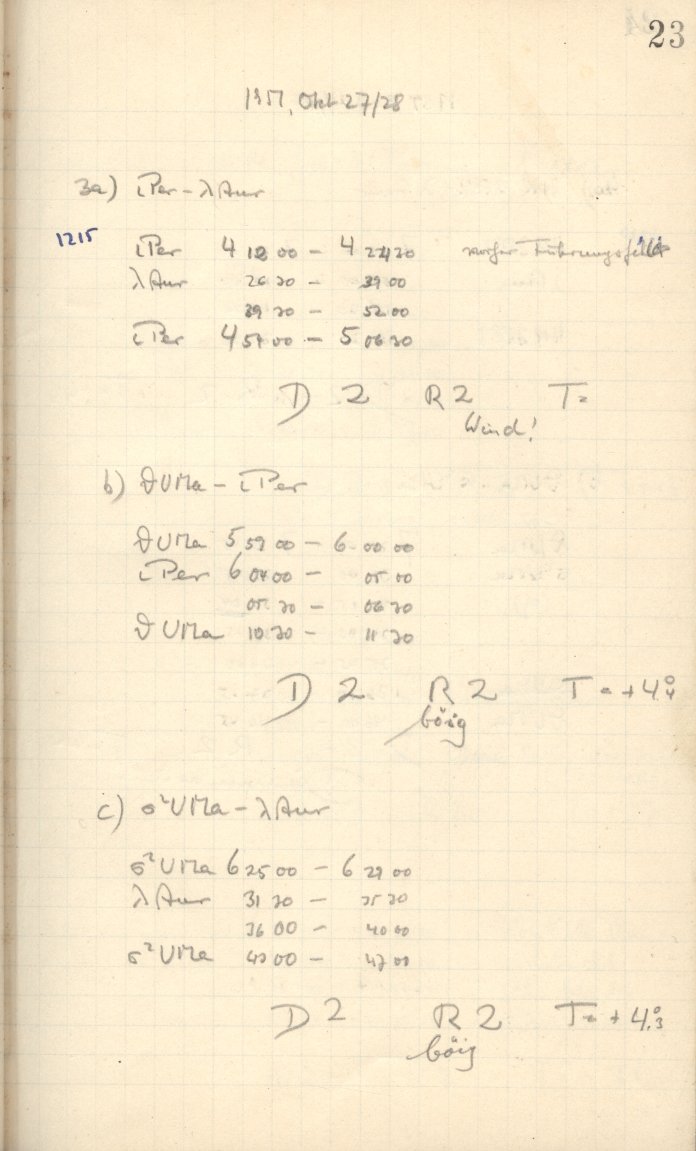 23
1957, Okt 27/28
3a) ιPer – λAur
1215 ιPer 4 18 00 – 4 22 30 vorher Führungsfehler
λAur 26 30 – 39 00
39 30 – 52 00
ιPer 4 57 00 – 5 06 30
D 2 R 2 T =
Wind!
b) ϑUMa – ιPer
ϑUMa 5 59 00 – 6 00 00
ιPer 6 04 00 – 05 00
05 30 – 06 30
ϑUMa 10 30 – 11 30
D 2 R 2 T = +4.°4
böig
c) σ²UMa – λAur
σ²UMa 6 25 00 – 6 29 00
λAur 31 30 – 35 30
36 00 – 40 00
σ²UMa 43 00 – 47 00
D 2 R 2 T = +4.°3
böig